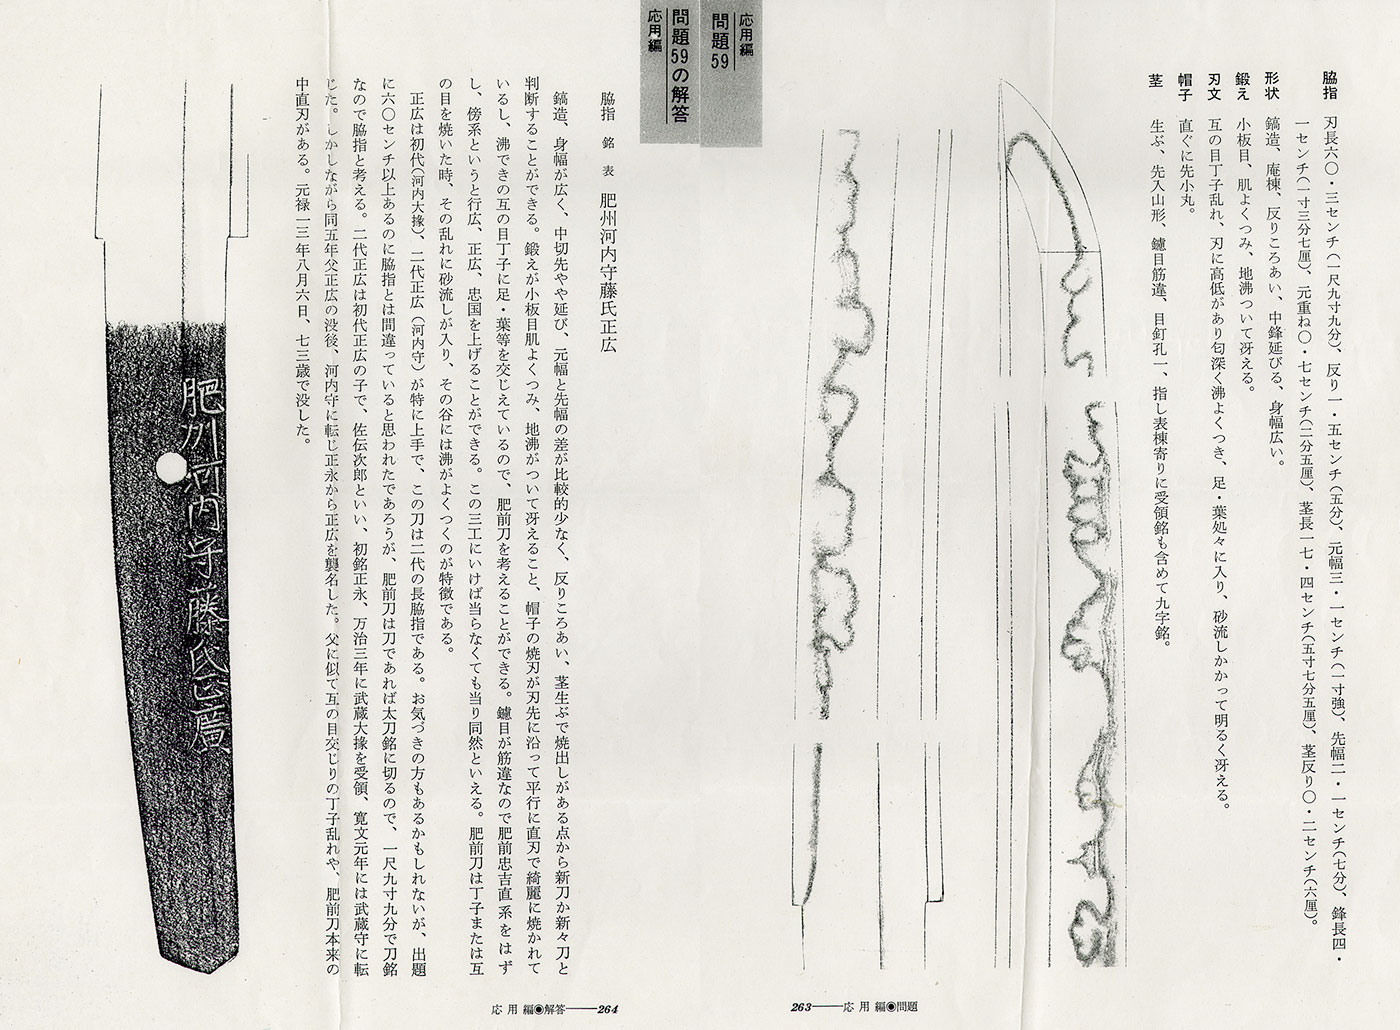 応用編
問題59
脇指　刃長六〇・三センチ（一尺九寸九分）、反り一・五センチ（五分）、元幅三・一センチ（一寸強）、先幅二・一センチ（七分）、鋒長四・
一センチ（一寸三分七厘）、元重ね〇・七センチ（二分五厘）、茎長一七・四センチ（五寸七分五厘）、茎反り〇・二センチ（六厘）。
形状　鎬造、庵棟、反りころあい、中鋒延びる、身幅広い。
鍛え　小板目、肌よくつみ、地沸ついて冴える。
刃文　互の目丁子乱れ、刃に高低があり匂深く沸よくつき、足・葉処々に入り、砂流しかかって明るく冴える。
帽子　直ぐに先小丸。
茎　生ぶ、先入山形、鑢目筋違、目釘孔一、指し表棟寄りに受領銘も含めて九字銘。
263——応用編◉問題
応用編
問題59の解答
脇指　銘　表　肥州河内守藤氏正広
鎬造、身幅が広く、中切先やや延び、元幅と先幅の差が比較的少なく、反りころあい、茎生ぶで焼出しがある点から新刀か新々刀と
判断することができる。鍛えが小板目肌よくつみ、地沸がついて冴えること、帽子の焼刃が刃先に沿って平行に直刃で綺麗に焼かれて
いるし、沸できの互の目丁子に足・葉等を交じえているので、肥前刀を考えることができる。鑢目が筋違なので肥前忠吉直系をはず
し、傍系というと行広、正広、忠国を上げることができる。この三工にいけば当らなくても当り同然といえる。肥前刀は丁子または互
の目を焼いた時、その乱れに砂流しが入り、その谷には沸がよくつくのが特徴である。
正広は初代（河内大掾）、二代正広（河内守）が特に上手で、この刀は二代の長脇指である。お気づきの方もあるかもしれないが、出題
に六〇センチ以上あるのに脇指とは間違っていると思われたであろうが、肥前刀は刀であれば太刀銘に切るので、一尺九寸九分で刀銘
なので脇指と考える。二代正広は初代正広の子で、佐伝次郎といい、初銘正永、万治三年に武蔵大掾を受領、寛文元年には武蔵守に転
じた。しかしながら同五年父正広の没後、河内守に転じ正永から正広を襲名した。父に似て互の目交じりの丁子乱れや、肥前刀本来の
中直刃がある。元禄一三年八月六日、七三歳で没した。
肥州河内守藤氏正廣
応用編◉解答——264